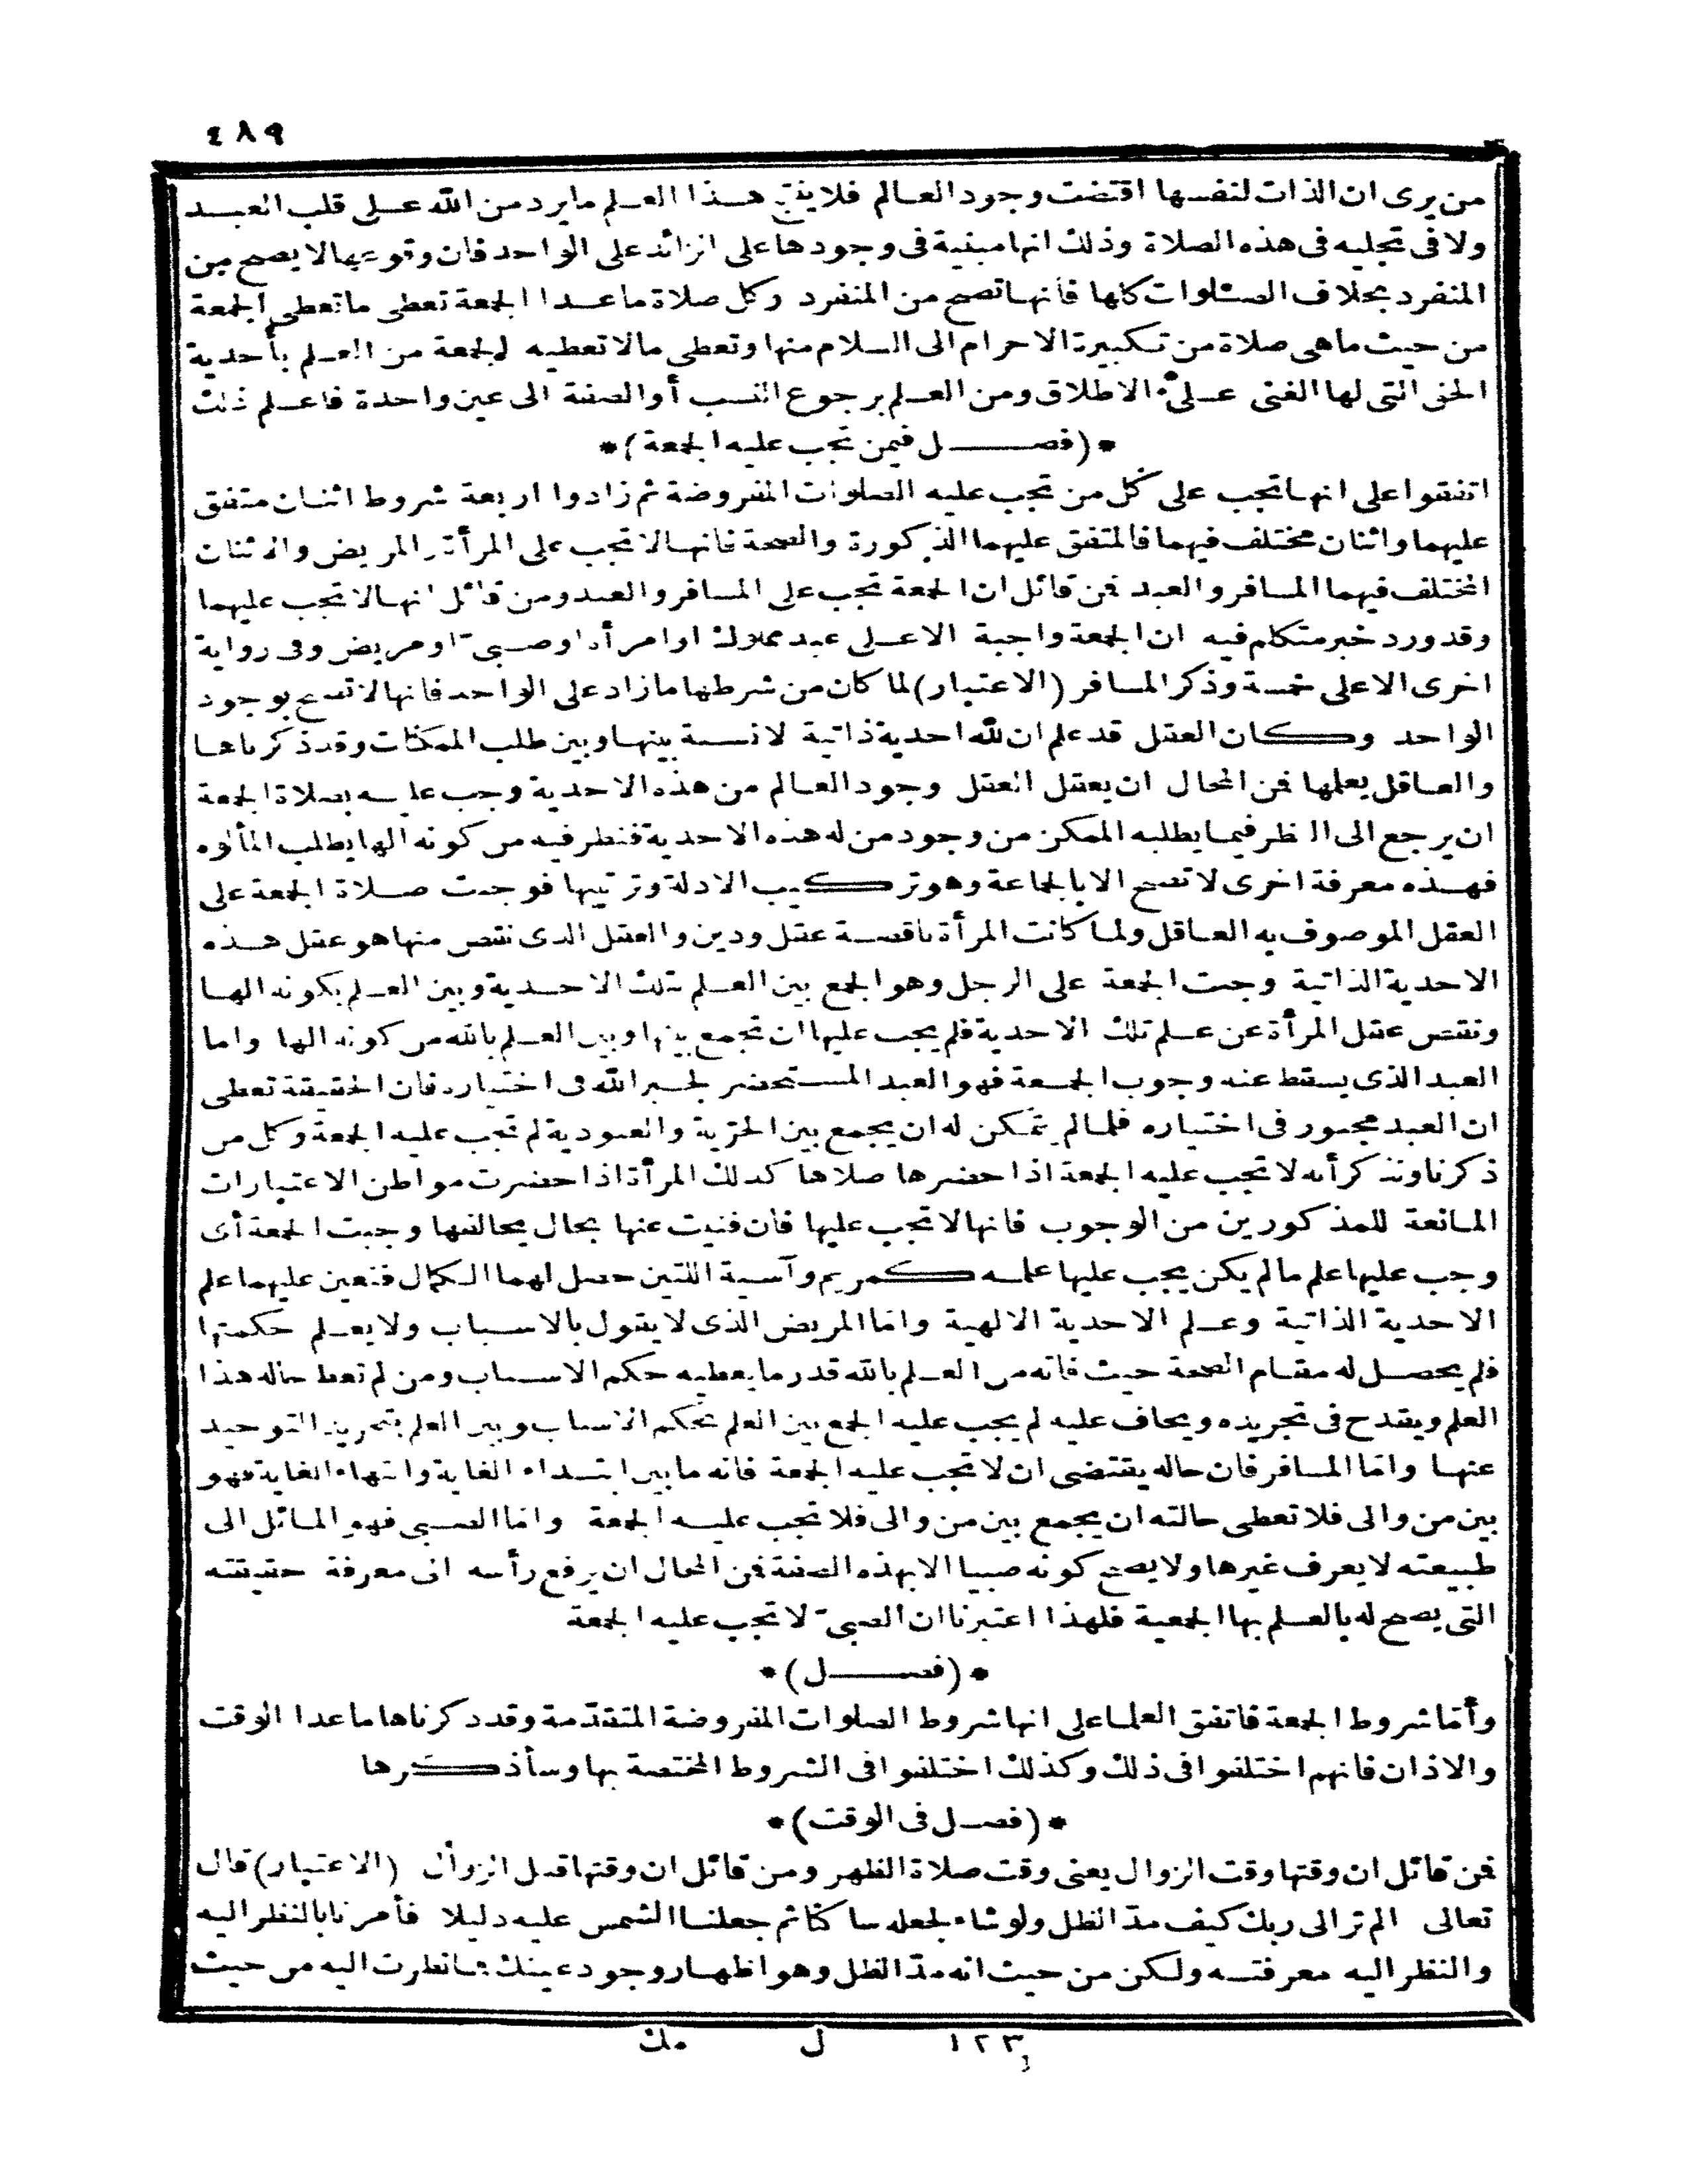 ٤٨٩
من يرى ان الذات لنفسها اقتضت وجود العالم فلا ينتج هذا العلم ما يرد من الله على قلب العبد
ولا فى تجليه فى هذه الصلاة وذلك انها مبنية فى وجودها على الزائد على الواحد فان وقوعها لا يصح من
المنفرد بخلاف الصلوات كلها فانها تصح من المنفرد وكل صلاة ما عدا الجمعة تعطى ما تعطى الجمعة
من حيث ما هى صلاة من تكبيرة الاحرام الى السلام منها وتعطى ما لا تعطيه الجمعة من العلم بأحدية
الحق التى لها الغنى على الاطلاق ومن العلم برجوع النسب أو الصفة الى عين واحدة فاعلم ذلك
*(فصل فيمن تجب عليه الجمعة)*
اتفقوا على انها تجب على كل من تجب عليه الصلوات المفروضة ثم زادوا اربعة شروط اثنان متفق
عليهما واثنان مختلف فيهما فالمتفق عليهما الذكورة والصحة فانها لا تجب على المرأة والمريض والاثنان
المختلف فيهما المسافر والعبد فمن قائل ان الجمعة تجب على المسافر والعبد ومن قائل انها لا تجب عليهما
وقد ورد خبر متكلم فيه ان الجمعة واجبة الا على عبد مملوك او امرأة او صبىّ او مريض وفى رواية
اخرى الا على خمسة وذكر المسافر (الاعتبار) لما كان من شرطها ما زاد على الواحد فانها لا تصح بوجود
الواحد وكان العقل قد علم ان لله احدية ذاتية لا نسبة بينها وبين طلب الممكنات وقد ذكرناها
والعاقل يعلمها فمن المحال ان يعقل العقل وجود العالم من هذه الاحدية وجب عليه بصلاة الجمعة
ان يرجع الى النظر فيما يطلبه الممكن من وجود من له هذه الاحدية فنظر فيه من كونه الها يطلب المألوه
فهذه معرفة اخرى لا تصح الا بالجماعة وهو تركيب الادلة وترتيبها فوجبت صلاة الجمعة على
العقل الموصوف به العاقل ولما كانت المرأة ناقصة عقل ودين والعقل الذى نقص منها هو عقل هذه
الاحدية الذاتية وجبت الجمعة على الرجل وهو الجمع بين العلم بتلك الاحدية وبين العلم بكونه الها
ونقص عقل المرأة عن علم تلك الاحدية فلم يجب عليها ان تجمع بينها وبين العلم بالله من كونه الها واما
العبد الذى يسقط عنه وجوب الجمعة فهو العبد المستحضر لجبر الله فى اختياره فان الحقيقة تعطى
ان العبد مجبور فى اختياره فلما لم يتمكن له ان يجمع بين الحرّية والعبودية لم تجب عليه الجمعة وكل من
ذكرناونذكر أنه لا تجب عليه الجمعة اذا حضرها صلاها كذلك المرأة اذا حضرت مواطن الاعتبارات
المانعة للمذكورين من الوجوب فانها لا تجب عليها فان فنيت عنها بحال يخالفها وجبت الجمعة أى
وجب عليها علم ما لم يكن يجب عليها علمه كمريم وآسية اللتين حصل لهما الكمال فتعين عليهما علم
الاحدية الذاتية وعلم الاحدية الالهية وامّا المريض الذى لا يقول بالاسباب ولا يعلم حكمتها
فلم يحصل له مقام الصحة حيث فاته من العلم بالله قدر ما يعطيه حكم الاسباب ومن لم تعط حاله هذا
العلم ويقدح فى تجريده ويخاف عليه لم يجب عليه الجمع بين العلم بحكم الاسباب وبين العلم بتجريد التوحيد
عنها وامّا المسافر فان حاله يقتضى ان لا تجب عليه الجمعة فانه ما بين ابتداء الغاية وانتهاء الغاية فهو
بين من والى فلا تعطى حالته ان يجمع بين من والى فلا تجب عليه الجمعة وامّا الصبى فهو المائل الى
طبيعته لا يعرف غيرها ولا يصح كونه صبيا الا بهذه الصفة فمن المحال ان يرفع رأسه الى معرفة حقيقته
التى يصح له بالعلم بها الجمعية فلهذا اعتبرنا ان الصبىّ لا تجب عليه الجمعة
*(فصل)*
وأمّا شروط الجمعة فاتفق العلما على انها شروط الصلوات المفروضة المتقدّمة وقد ذكرناها ما عدا الوقت
والاذان فانهم اختلفوا فى ذلك وكذلك اختلفوا فى الشروط المختصة بها وسأذكرها
*(فصل فى الوقت)*
فمن قائل ان وقتها وقت الزوال يعنى وقت صلاة الظهر ومن قائل ان وقتها قبل الزوال (الاعتبار) قال
تعالى الم تر الى ربك كيف مدّ الظل ولو شاء لجعله ساكنا ثم جعلنا الشمس عليه دليلا فأمرنا بالنظر اليه
والنظر اليه معرفته ولكن من حيث انه مدّ الظل وهو اظهار وجود عينك فما نظرت اليه من حيث
١٢٣ ل مك